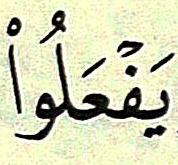 يَفۡعَلُواْ